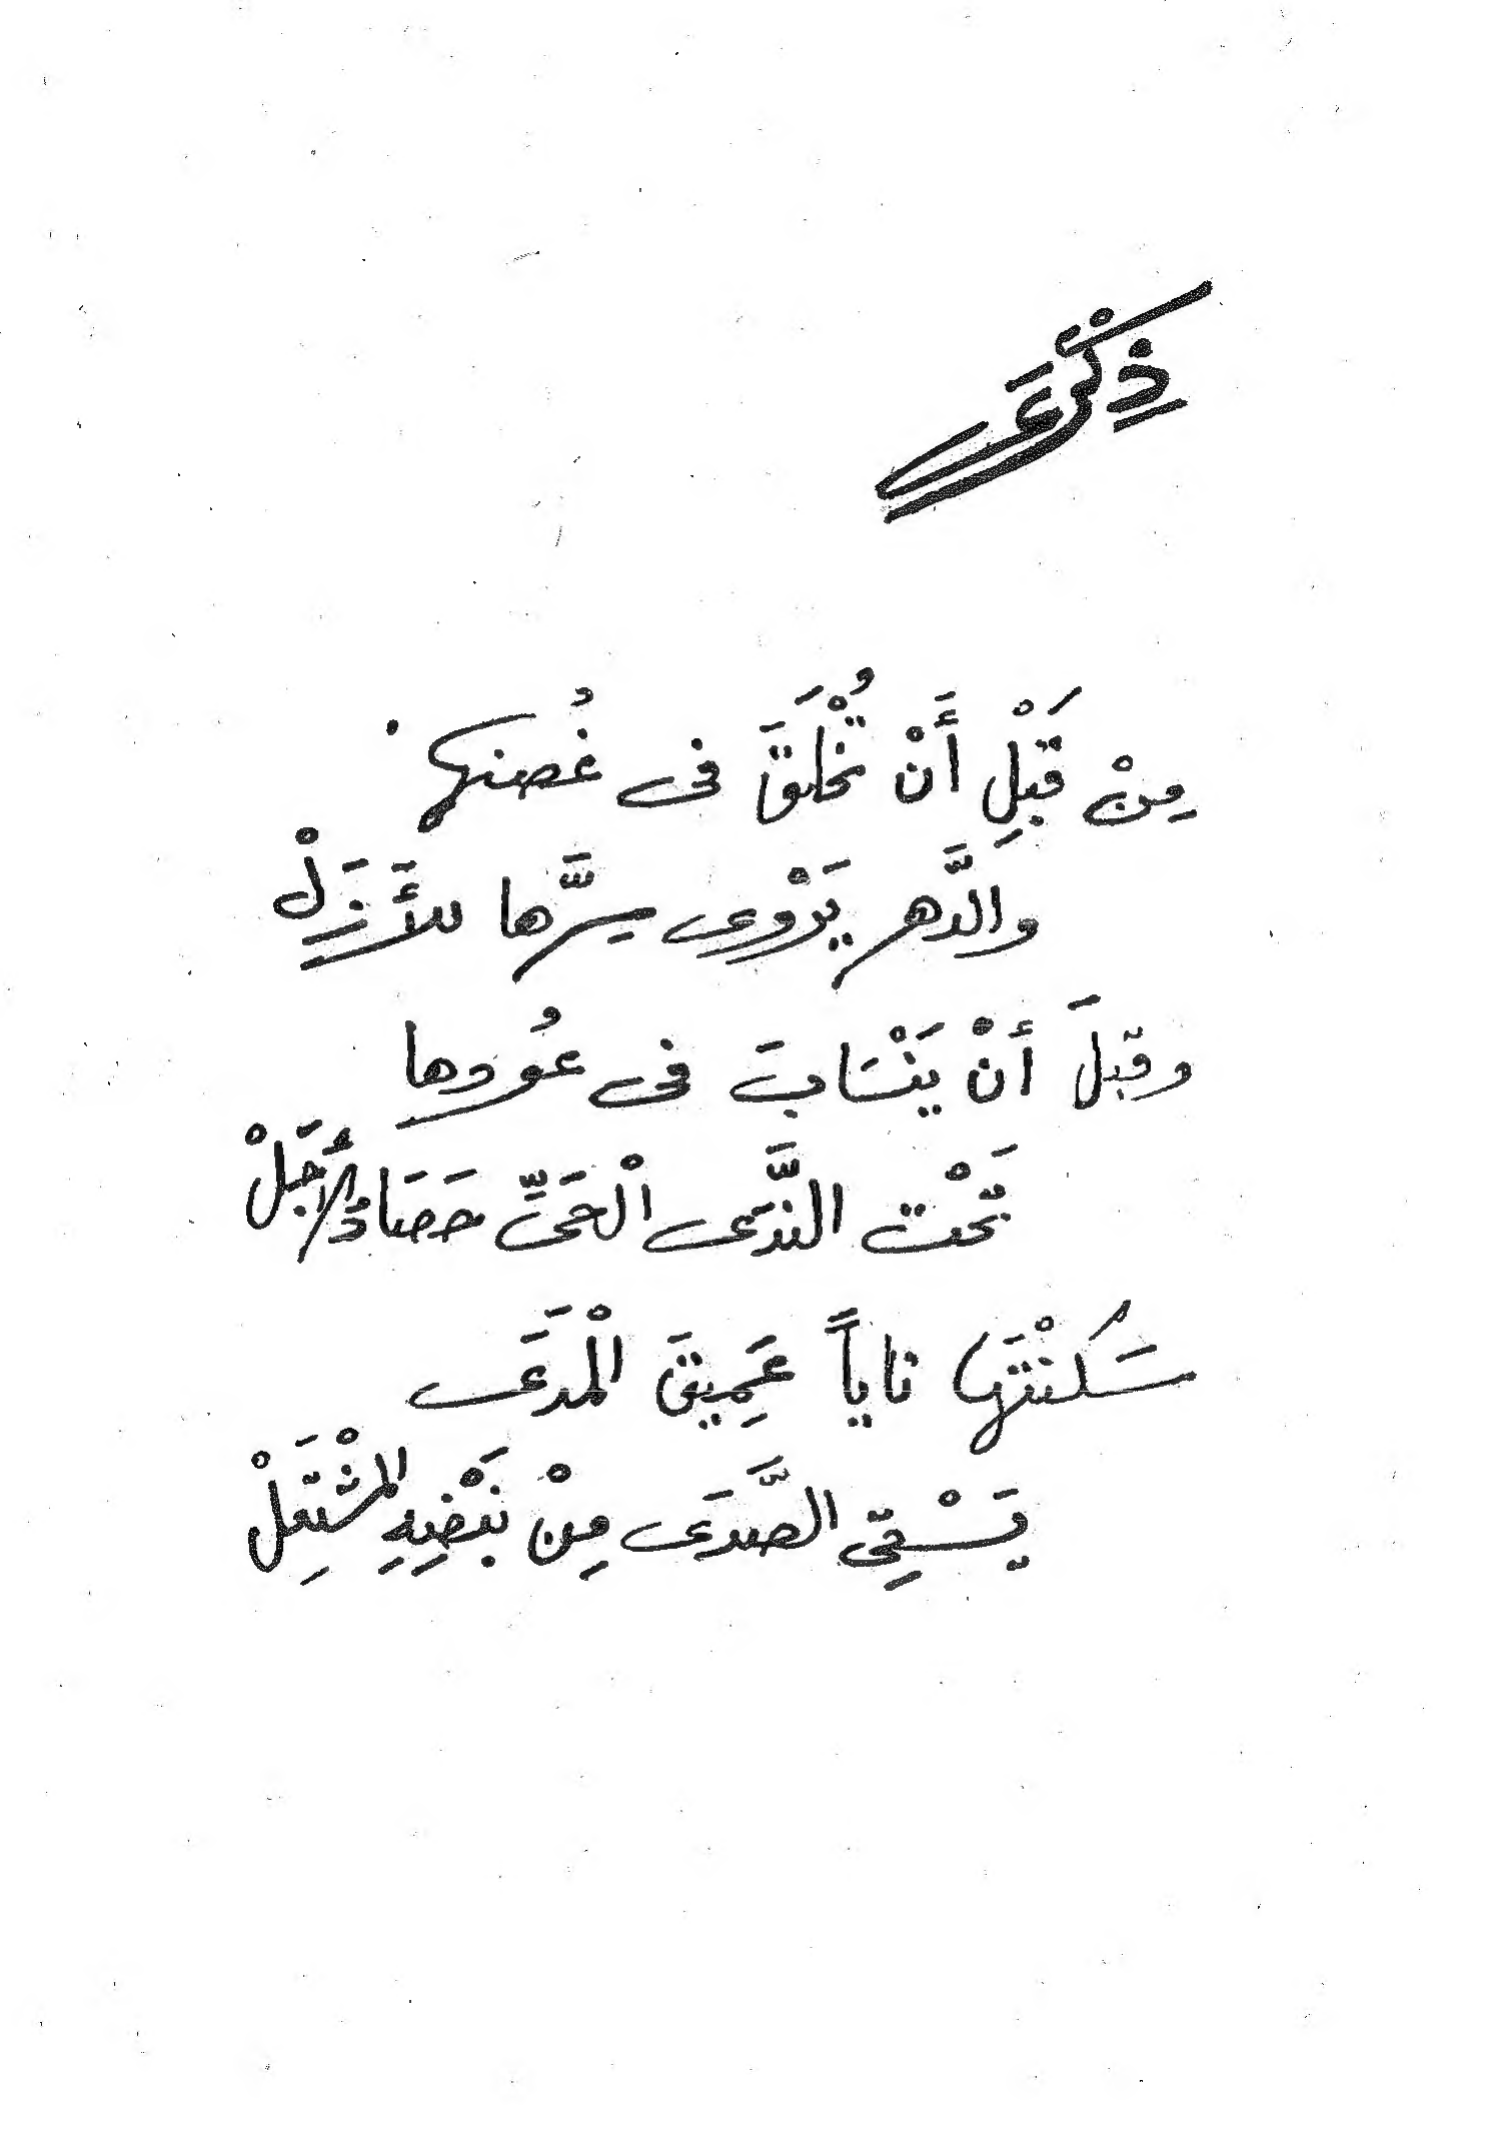 ذِكْرَى
مِنْ قَبْلِ أَنْ تُخْلَقَ فى غُصنها
والدَّهر يَرْوِى سِرَّها للأَزَلْ
وقبلَ أنْ يَنْسَابَ فى عُودها
تَحْت النَّدَى الْحَىِّ حَصَادُ الأَجَلْ
سَكَنْتَها ناياً عَمِيقَ الْمَدَى
يَسْقِى الصَّدَى مِنْ نَبْضِهِ المشْتَعِلْ